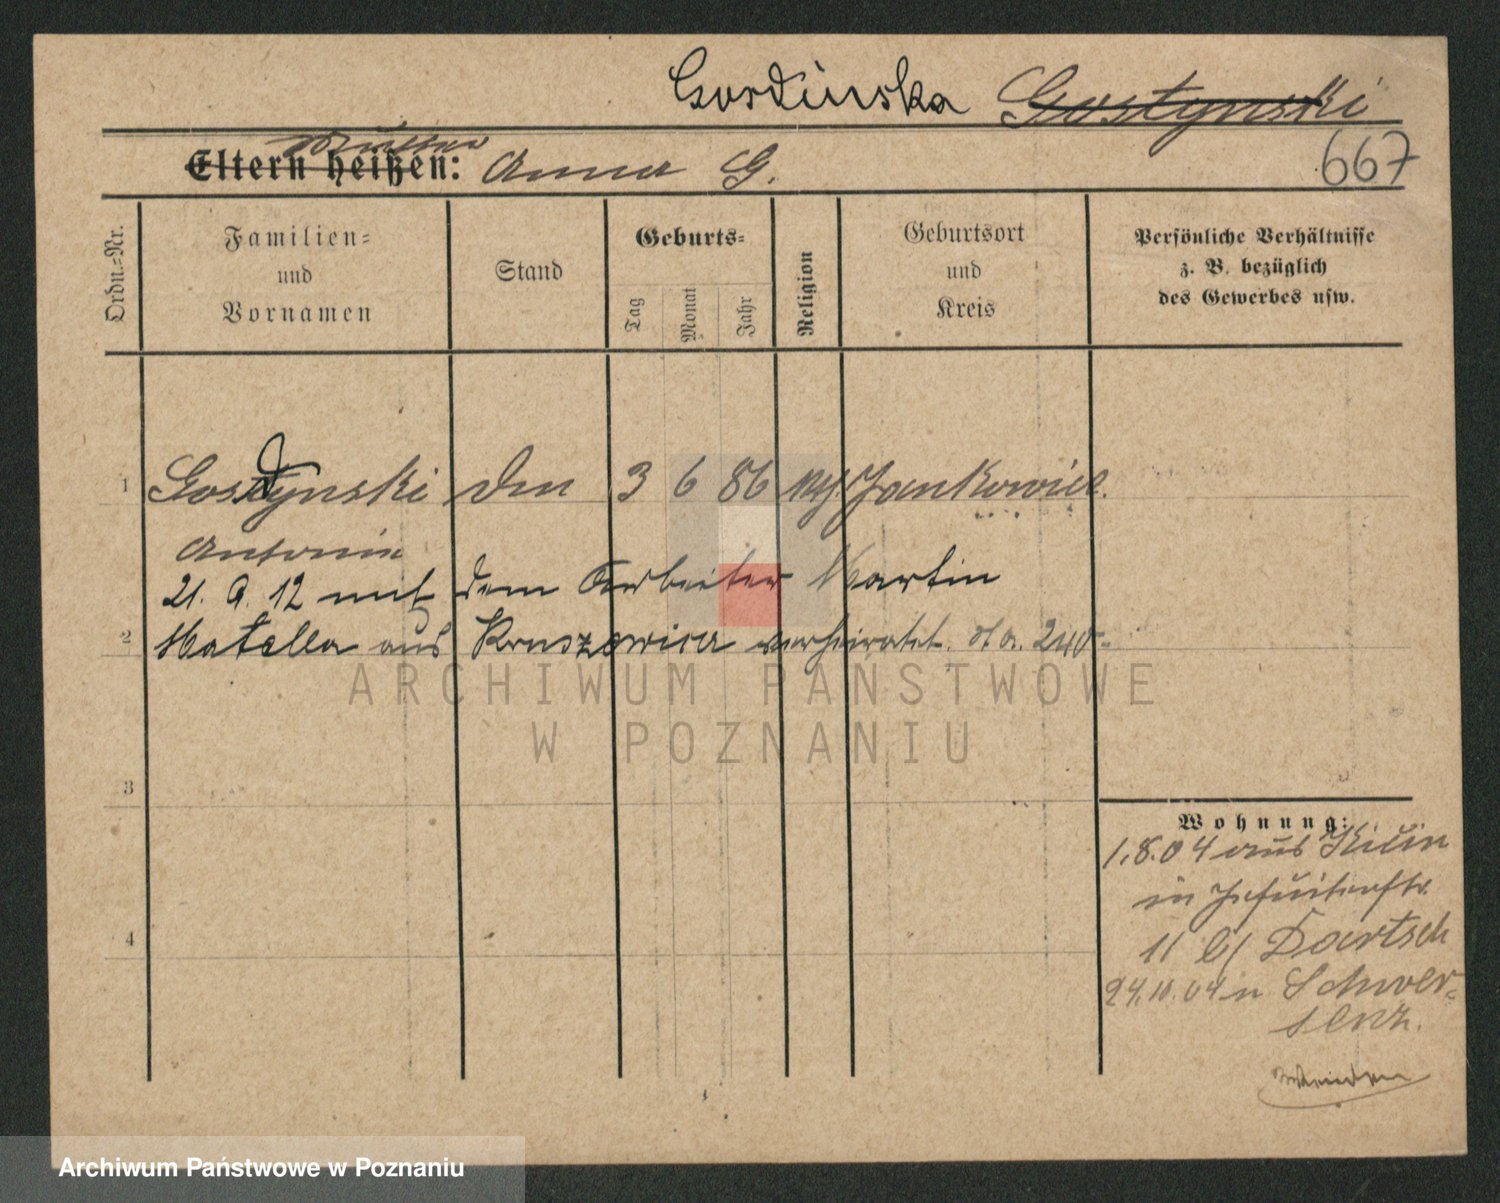 Gordinska Gostynski
Mutter
Eltern heißen: Anna G.
667
Ordn.-Nr.
Familien-
und
Vornamen
Stand
Geburts-
Tag
Monat
Jahr
Religion
Geburtsort
und
Kreis
Persönliche Verhältnisse
z. B. bezüglich
des Gewerbes usw.
1 Gosdynski 3 6 86 Jankowice
Antonie
21. 9. 12 mit dem Arbeiter Martin
2 Matella aus Kruszewica verheiratet. St A. 240
3
4
Wohnung:
1.8.04 aus Kicin
in Jesuitenstr.
11 b/ Bartsch
24.10.04 n Schwer-
senz.
ARCHIWUM PAŃSTWOWE
W POZNANIU
Archiwum Państwowe w Poznaniu